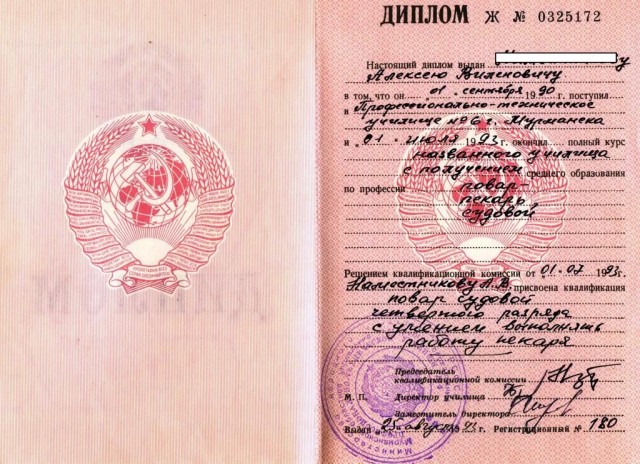 ДИПЛОМ Ж № 0325172
Настоящий диплом выдан
Алексею Виленовичу
в том, что он „01" сентября 1990 г. поступил
в Профессионально-техническое
училище №6 г. Мурманска
и „01" июля 1993 г. окончил полный курс
названного училища
с получением среднего образования
по профессии повар-
пекарь
судовой
Решением квалификационной комиссии от 01.07 1993 г.
Наместникову А.В. присвоена квалификация
повар судовой
четвертого разряда
с умением выполнять
работу пекаря
Председатель
квалификационной комиссии
М. П. Директор училища
Заместитель директора
Выдан „25" августа 1993 г. Регистрационный № 180